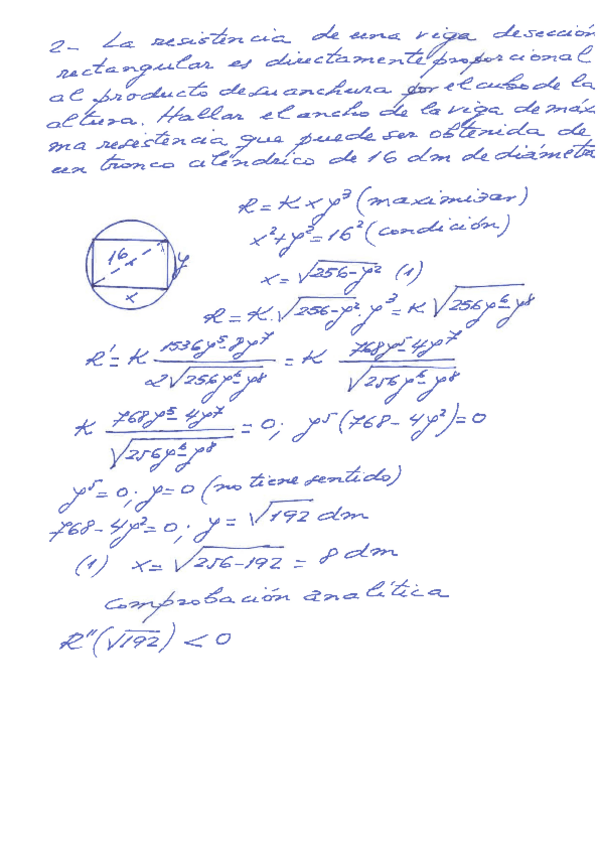 2- La resistencia de una viga de sección
rectangular es directamente proporcional
al producto de su anchura por el cubo de la
altura. Hallar el ancho de la viga de máx
ma resistencia que puede ser obtenida de
un tronco cilíndrico de 16 dm de diámetro
R = K x y³ (maximizar)
x² + y² = 16² (condición)
16
y
x
x = √(256 - y²) (1)
R = K · √(256 - y²) · y³ = K √(256y⁶ - y⁸)
R' = K (1536y⁵ - 8y⁷) / (2√(256y⁶ - y⁸)) = K (768y⁵ - 4y⁷) / √(256y⁶ - y⁸)
K (768y⁵ - 4y⁷) / √(256y⁶ - y⁸) = 0; y⁵(768 - 4y²) = 0
y⁵ = 0; y = 0 (no tiene sentido)
768 - 4y² = 0; y = √192 dm
(1) x = √(256 - 192) = 8 dm
comprobación analítica
R''(√192) < 0